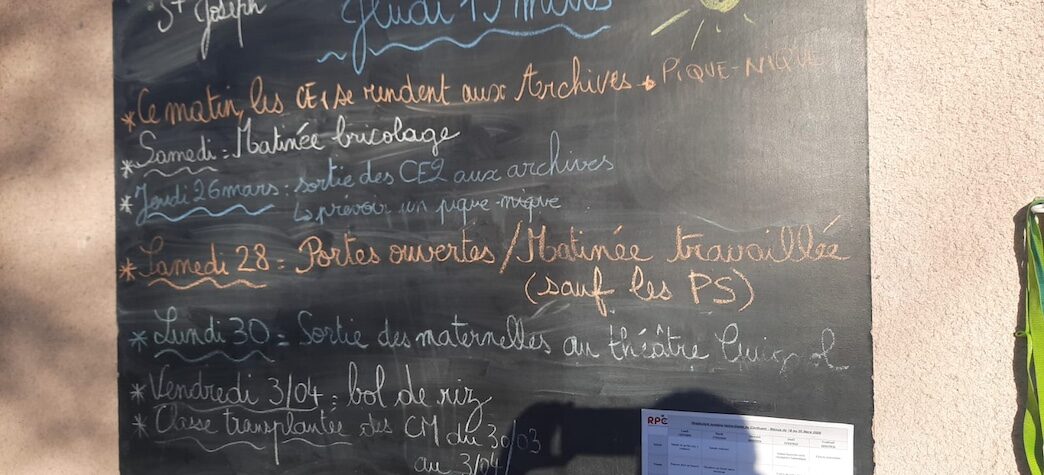 St Joseph
Jeudi 19 mars
* Ce matin, les CE1 se rendent aux Archives. PIQUE-NIQUE
* Samedi : Matinée bricolage
* Jeudi 26 mars : sortie des CE2 aux archives
↳ prévoir un pique-nique
* Samedi 28 = Portes ouvertes / Matinée travaillée
(sauf les PS)
* Lundi 30 = Sortie des maternelles au théâtre Guignol
* Vendredi 3/04 : bol de riz
* Classe transplantée des CM du 30/03
au 3/04
RPC